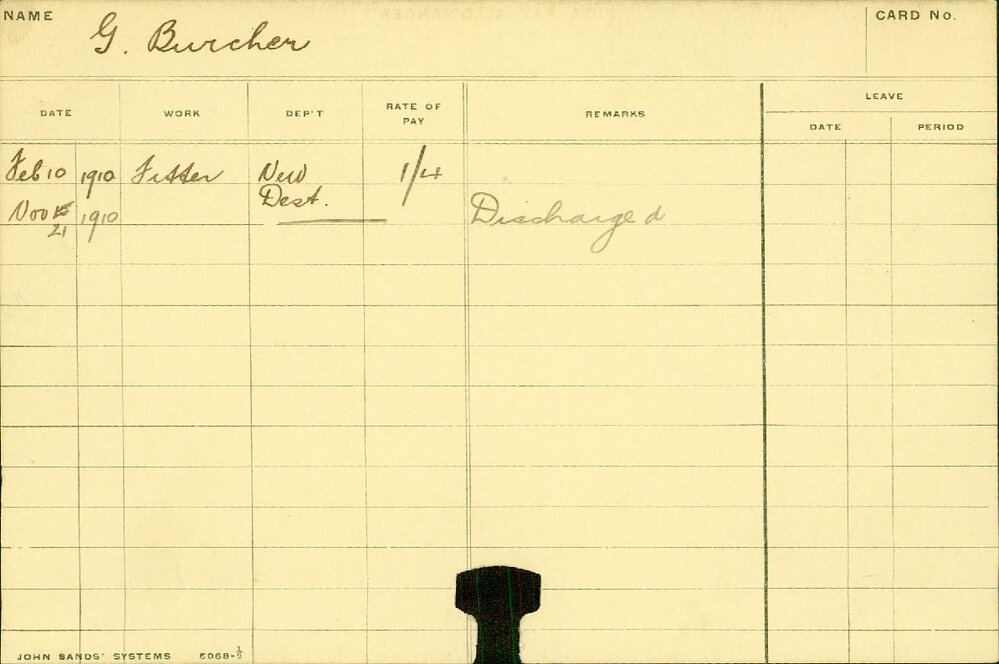 NAME G. Burcher CARD No.
LEAVE
DATE WORK DEP'T RATE OF PAY REMARKS DATE PERIOD
Feb 10 1910 Fitter New Dest. 1/4
Nov 21 1910 Discharged
JOHN SANDS' SYSTEMS